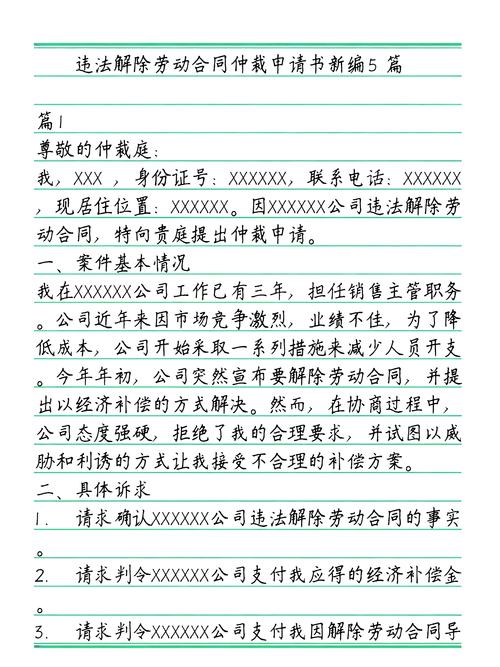 违法解除劳动合同仲裁申请书新编5 篇
篇1
尊敬的仲裁庭：
我，XXX ，身份证号：XXXXXX，联系电话：XXXXXX
，现居住位置：XXXXXX。因XXXXXX公司违法解除劳
动合同，特向贵庭提出仲裁申请。
一、案件基本情况
我在XXXXXX公司工作已有三年，担任销售主管职务
。公司近年来因市场竞争激烈，业绩不佳，为了降
低成本，公司开始采取一系列措施来减少人员开支
。今年年初，公司突然宣布要解除劳动合同，并提
出以经济补偿的方式解决。然而，在协商过程中，
公司态度强硬，拒绝了我的合理要求，并试图以威
胁和利诱的方式让我接受不合理的补偿方案。
二、具体诉求
1. 请求确认XXXXXX公司违法解除劳动合同的事实
。
2. 请求判令XXXXXX公司支付我应得的经济补偿金
。
3. 请求判令XXXXXX公司支付我因解除劳动合同导